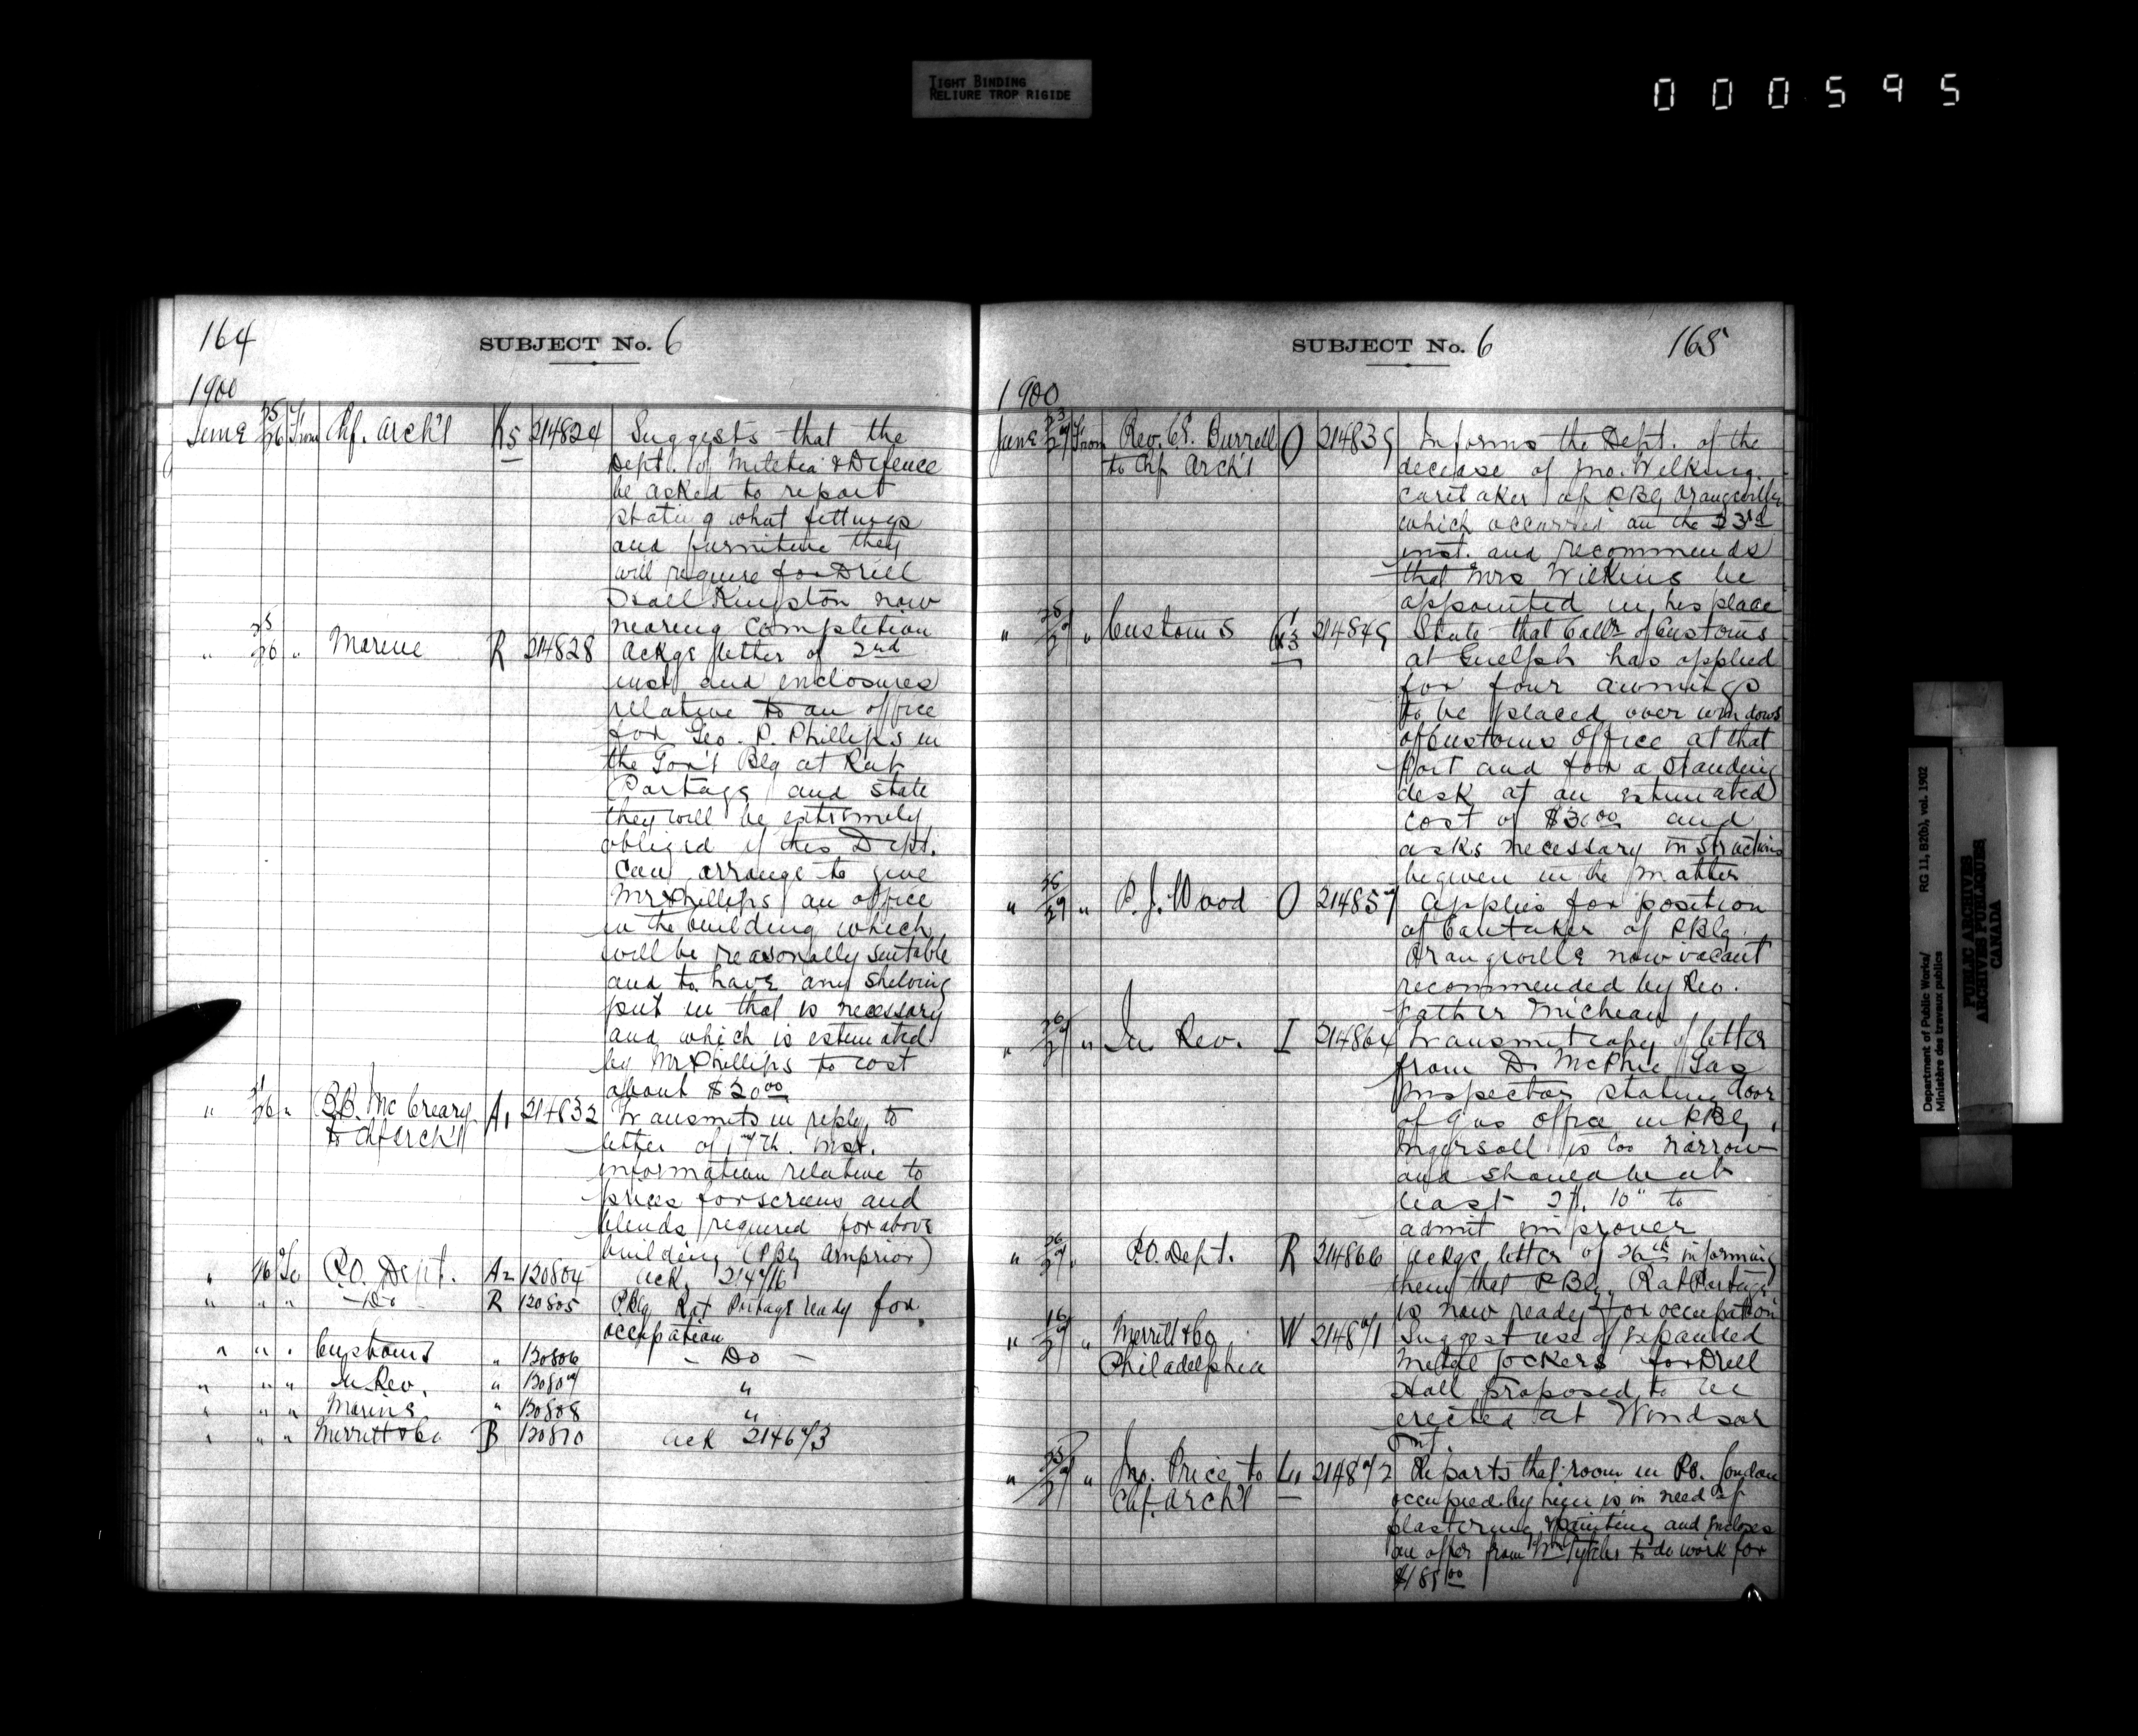 TIGHT BINDING
RELIURE TROP RIGIDE
000595
164
SUBJECT No. 6
1900
June 25/26 From Chf. Arch't K5 214824 Suggests that the
Dept. of Militia & Defence
be asked to report
stating what fittings
and furniture they
will require for Drill
Hall Kingston now
nearing completion
" 25/26 " Marine R 214828 Ackgs letter of 2nd
inst and enclosures
relative to an office
for Geo. P. Phillips in
the Gov't Blg at Rat
Portage and state
they will be extremely
obliged if this Dept.
can arrange to give
Mr Phillips an office
in the building which
will be reasonally suitable
and to have any shelving
put in that is necessary
and which is estimated
by Mr Phillips to cost
about $20.00
" 26 " B.B. McCreary A1 214832 Transmits in reply to
to Chf Arch't letter of 17th. inst.
information relative to
prices for screens and
blinds required for above
building (PBlg Arnprior)
" 26 To P.O. Dept. A2 120804 Ack. 214716
" " " - Do - R 120805 P.Blg Rat Portage ready for
occupation
" " " Customs " 120806 - Do -
" " " In Rev. " 120807 "
" " " Marine " 120808 "
" " " Merritt & Co B 120810 Ack 214673
SUBJECT No. 6 165
1900
June 23/27 From Rev. Burrell O 214835 Informs the Dept. of the
to Chf Arch't decease of Jno. Wilkins
caretaker of PBlg Orangeville
which occurred on the 23rd
inst. and recommends
that Mrs Wilkins be
appointed in his place
" 25/27 " Customs G3 214849 State that Collr of Customs
at Guelph has applied
for four awnings
to be placed over windows
of Customs Office at that
Port and for a standing
desk at an estimated
cost of $30.00 and
asks necessary instructions
be given in the matter
" 26/27 " P.J. Wood O 214857 Applies for position
of Caretaker of PBlg.
Orangeville now vacant
recommended by Rev.
Father Micheau
" 26/27 " In Rev. I 214864 Transmit copy of letter
from D. McPhie Gas
Inspector stating door
of gas office in PBlg,
Ingersoll is too narrow
and should be at
least 2 ft. 10" to
admit improver
" 26/27 " P.O. Dept. R 214866 Ackgs letter of 26th informing
them that PBlg, Rat Portage
is now ready for occupation
" 16/27 " Merritt & Co W 214871 Suggest use of expanded
Philadelphia Metal Lockers for Drill
Hall proposed to be
erected at Windsor
Ont.
" 25/27 " Jno. Price to L1 214872 Reports that room in P.O. London
Chf. Arch't occupied by him is in need of
plastering & painting and incloses
an offer from Wm to do work for
$185.00
Department of Public Works/ RG 11, B2(b), vol. 1902
Ministère des travaux publics
PUBLIC ARCHIVES
ARCHIVES PUBLIQUES
CANADA